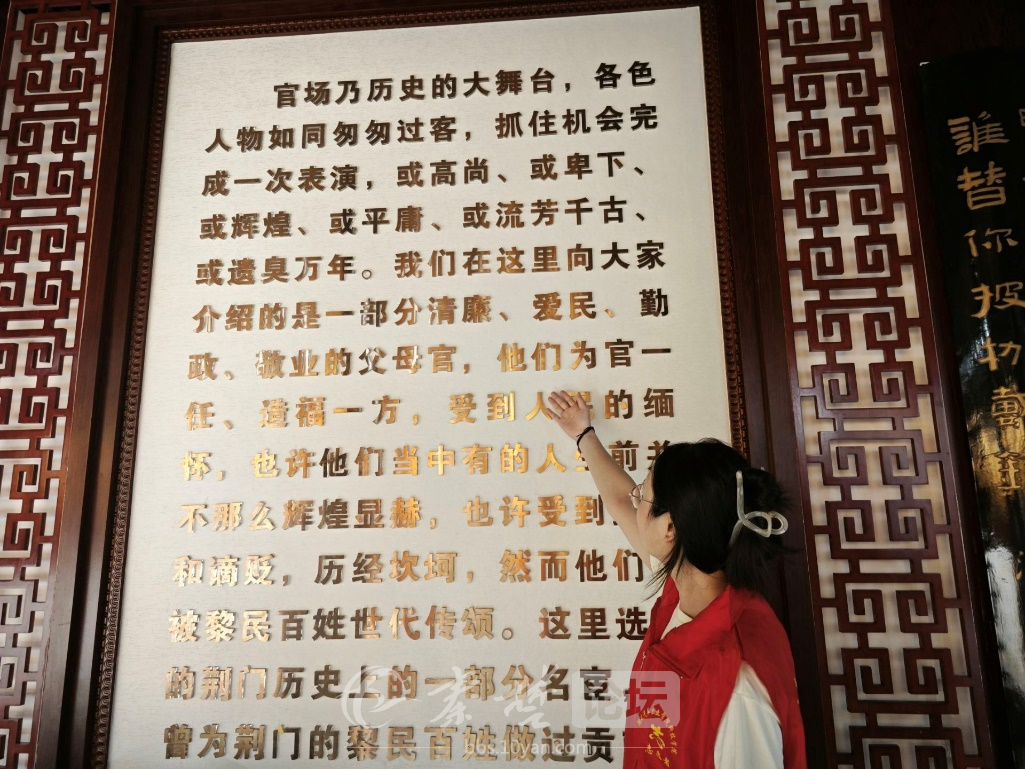 官场乃历史的大舞台，各色
人物如同匆匆过客，抓住机会完
成一次表演，或高尚、或卑下、
或辉煌、或平庸、或流芳千古、
或遗臭万年。我们在这里向大家
介绍的是一部分清廉、爱民、勤
政、敬业的父母官，他们为官一
任、造福一方，受到人民的缅
怀，也许他们当中有的人生前并
不那么辉煌显赫，也许受到
和谪贬，历经坎坷，然而他们
被黎民百姓世代传颂。这里选
的荆门历史上的一部分名官，
曾为荆门的黎民百姓做过贡
誰替你披枷戴鎖
秦楚论坛
bbs.10yan.com